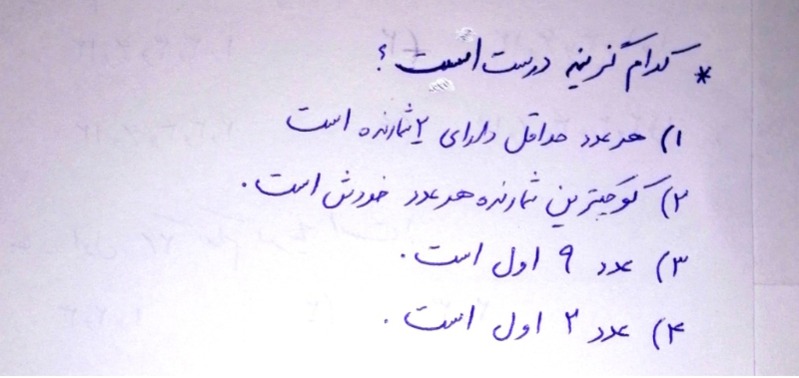 * کدام گزینه درست است؟
۱) هر عدد حداقل دارای ۲ شمارنده است
۲) کوچکترین شمارنده هر عدد خودش است.
۳) عدد ۹ اول است.
۴) عدد ۲ اول است.